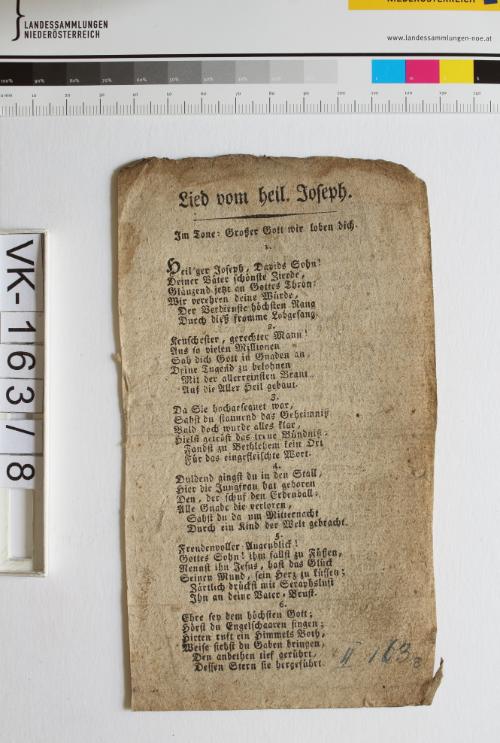 LANDESSAMMLUNGEN
NIEDERÖSTERREICH
NIEDERÖSTERREICH
www.landessammlungen-noe.at
VK-163/8
Lied vom heil. Joseph.
Im Tone: Großer Gott wir loben dich.
1.
Heil'ger Joseph, Davids Sohn!
Deiner Väter schönste Zierde,
Glänzend jetzt an Gottes Thron:
Wir verehren deine Würde,
Der Verdienste höchsten Rang
Durch dieß fromme Lobgesang.
2.
Keuschester, gerechter Mann!
Aus so vielen Millionen
Sah dich Gott in Gnaden an,
Deine Tugend zu belohnen
Mit der allerreinsten Braut
Auf die Aller Heil gebaut.
3.
Da Sie hochgesegnet war,
Sahst du staunend das Geheimniß
Bald doch wurde alles klar,
Hielst getröst das treue Bündniß.
Fandst zu Bethlehem kein Ort
Für das eingefleischte Wort.
4.
Duldend giengst du in den Stall,
Hier die Jungfrau hat geboren
Den, der schuf den Erdenball.
Alle Gnade die verloren,
Sahst du da um Mitternacht
Durch ein Kind der Welt gebracht.
5.
Freudenvoller Augenblick!
Gottes Sohn! ihm fallst zu Füßen,
Nennst ihn Jesus, hast das Glück
Seinen Mund, sein Herz zu küssen;
Zärtlich drückst mit Seraphslust
Ihn an deine Vater-Brust.
6.
Ehre sey dem höchsten Gott;
Hörst du Engelschaaren singen;
Hirten ruft ein Himmels Both,
Weise siehst du Gaben bringen,
Den anbethen tief gerührt,
Dessen Stern sie hergeführt.
II 163/8